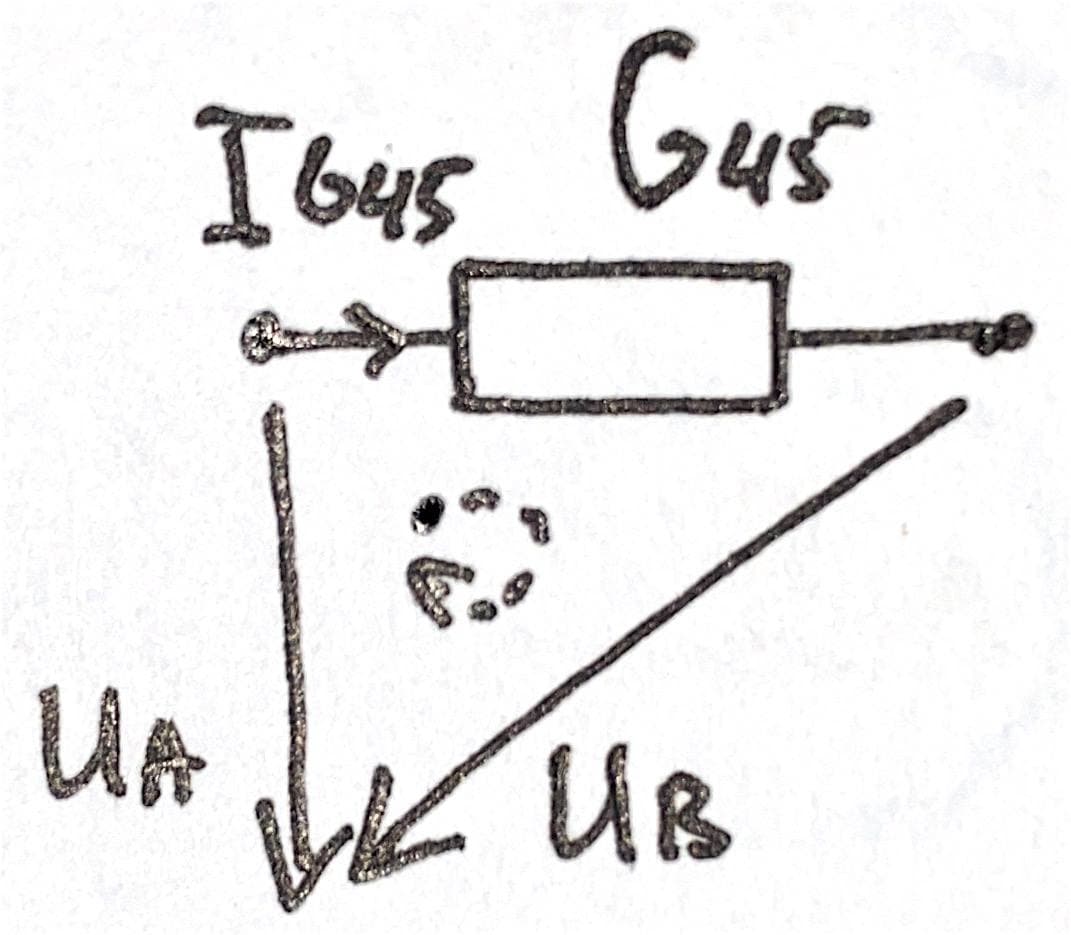 IG45 G45
UA UB